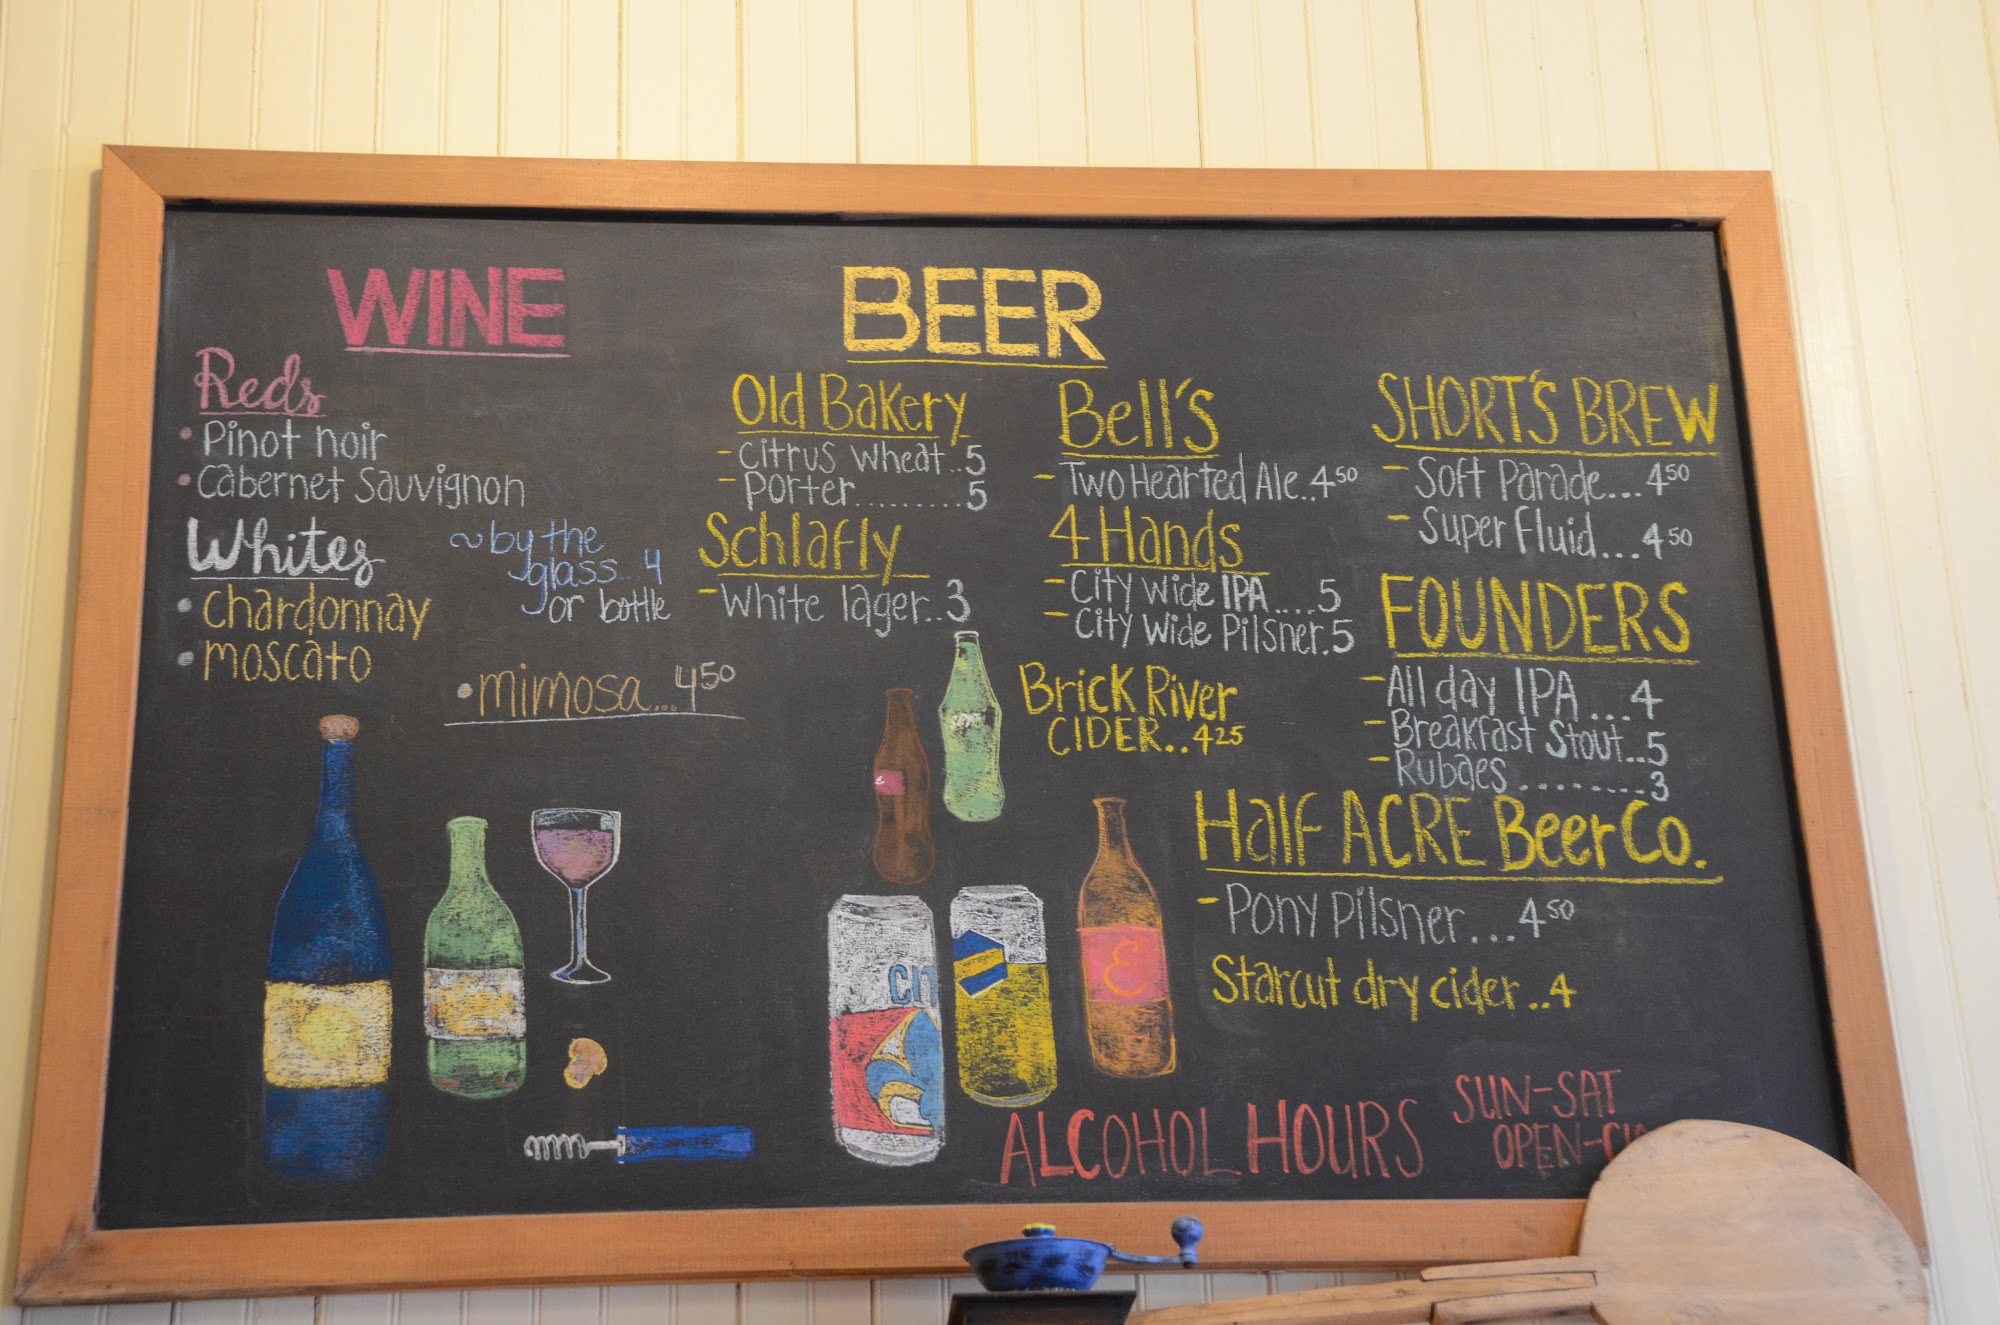 WINE
Reds
• Pinot noir
• Cabernet Sauvignon
Whites
• chardonnay
• moscato
~ by the
glass... 4
or bottle
• mimosa...4.50
BEER
Old Bakery
- Citrus Wheat..5
- Porter.........5
Schlafly
- White lager..3
Bell's
- Two Hearted Ale..4.50
4 Hands
- City Wide IPA....5
- City Wide Pilsner.5
Brick River
CIDER..4.25
SHORT'S BREW
- Soft Parade...4.50
- Superfluid...4.50
FOUNDERS
- All day IPA ...4
- Breakfast Stout..5
- Rubaes ........3
Half ACRE Beer Co.
- Pony Pilsner...4.50
Starcut dry cider..4
CIT
E
ALCOHOL HOURS
SUN-SAT
OPEN-